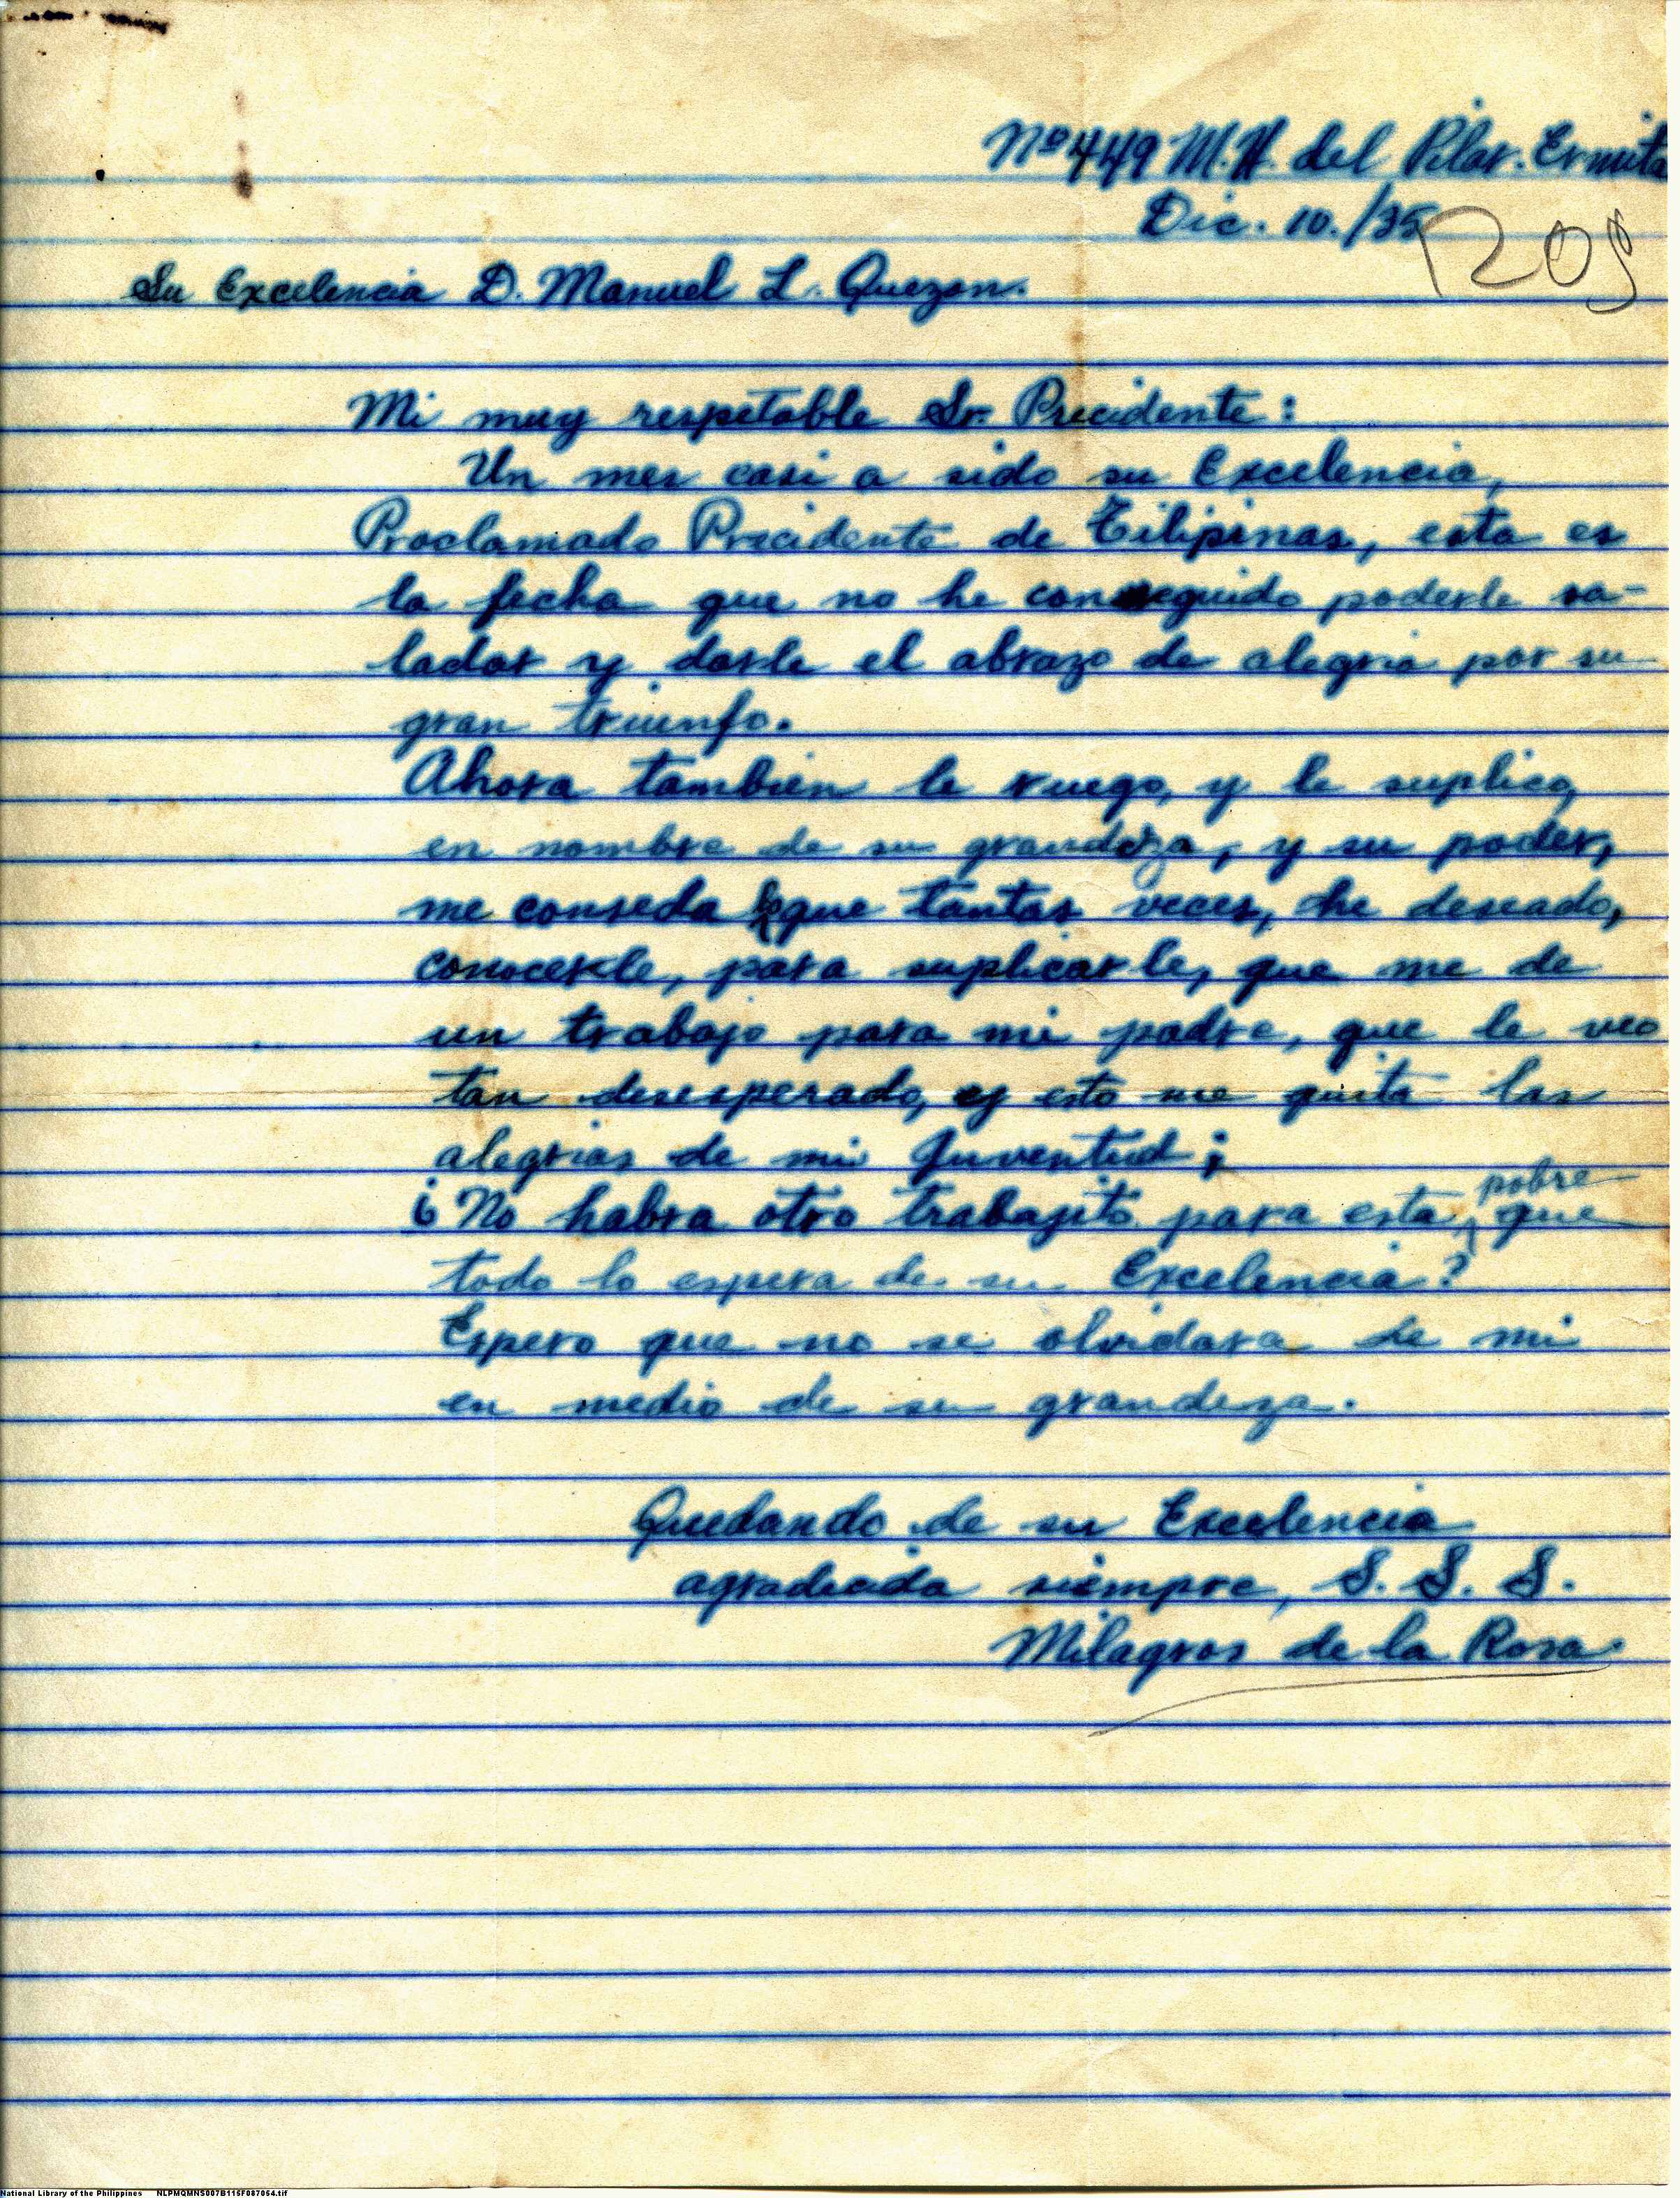 Nº 449 M.H. del Pilar. Ermita
Dic. 10./35
ROS
Su Excelencia D. Manuel L. Quezon.
Mi muy respetable Sr. Precidente:
Un mes casi a sido su Excelencia,
Proclamado Precidente de Filipinas, esta es
la fecha que no he conseguido poderle sa-
ladar y darle el abrazo de alegria por su
gran triunfo.
Ahora tambien le ruego, y le suplico,
en nombre de su grandeza, y su poder,
me conseda lo que tantas veces, he deseado,
conocerle, para suplicarle, que me de
un trabajo para mi padre, que le veo
tan desesperado, y esto me quita las
alegrias de mi Juventud;
¿No habra otro trabajito para esta pobre que
todo lo espera de su Excelencia?
Espero que no se olvidara de mi
en medio de su grandeza.
Quedando de su Excelencia
agradecida siempre, S. S. S.
Milagros de la Rosa
National Library of the Philippines NLPMQMNS007B115F087064.tif